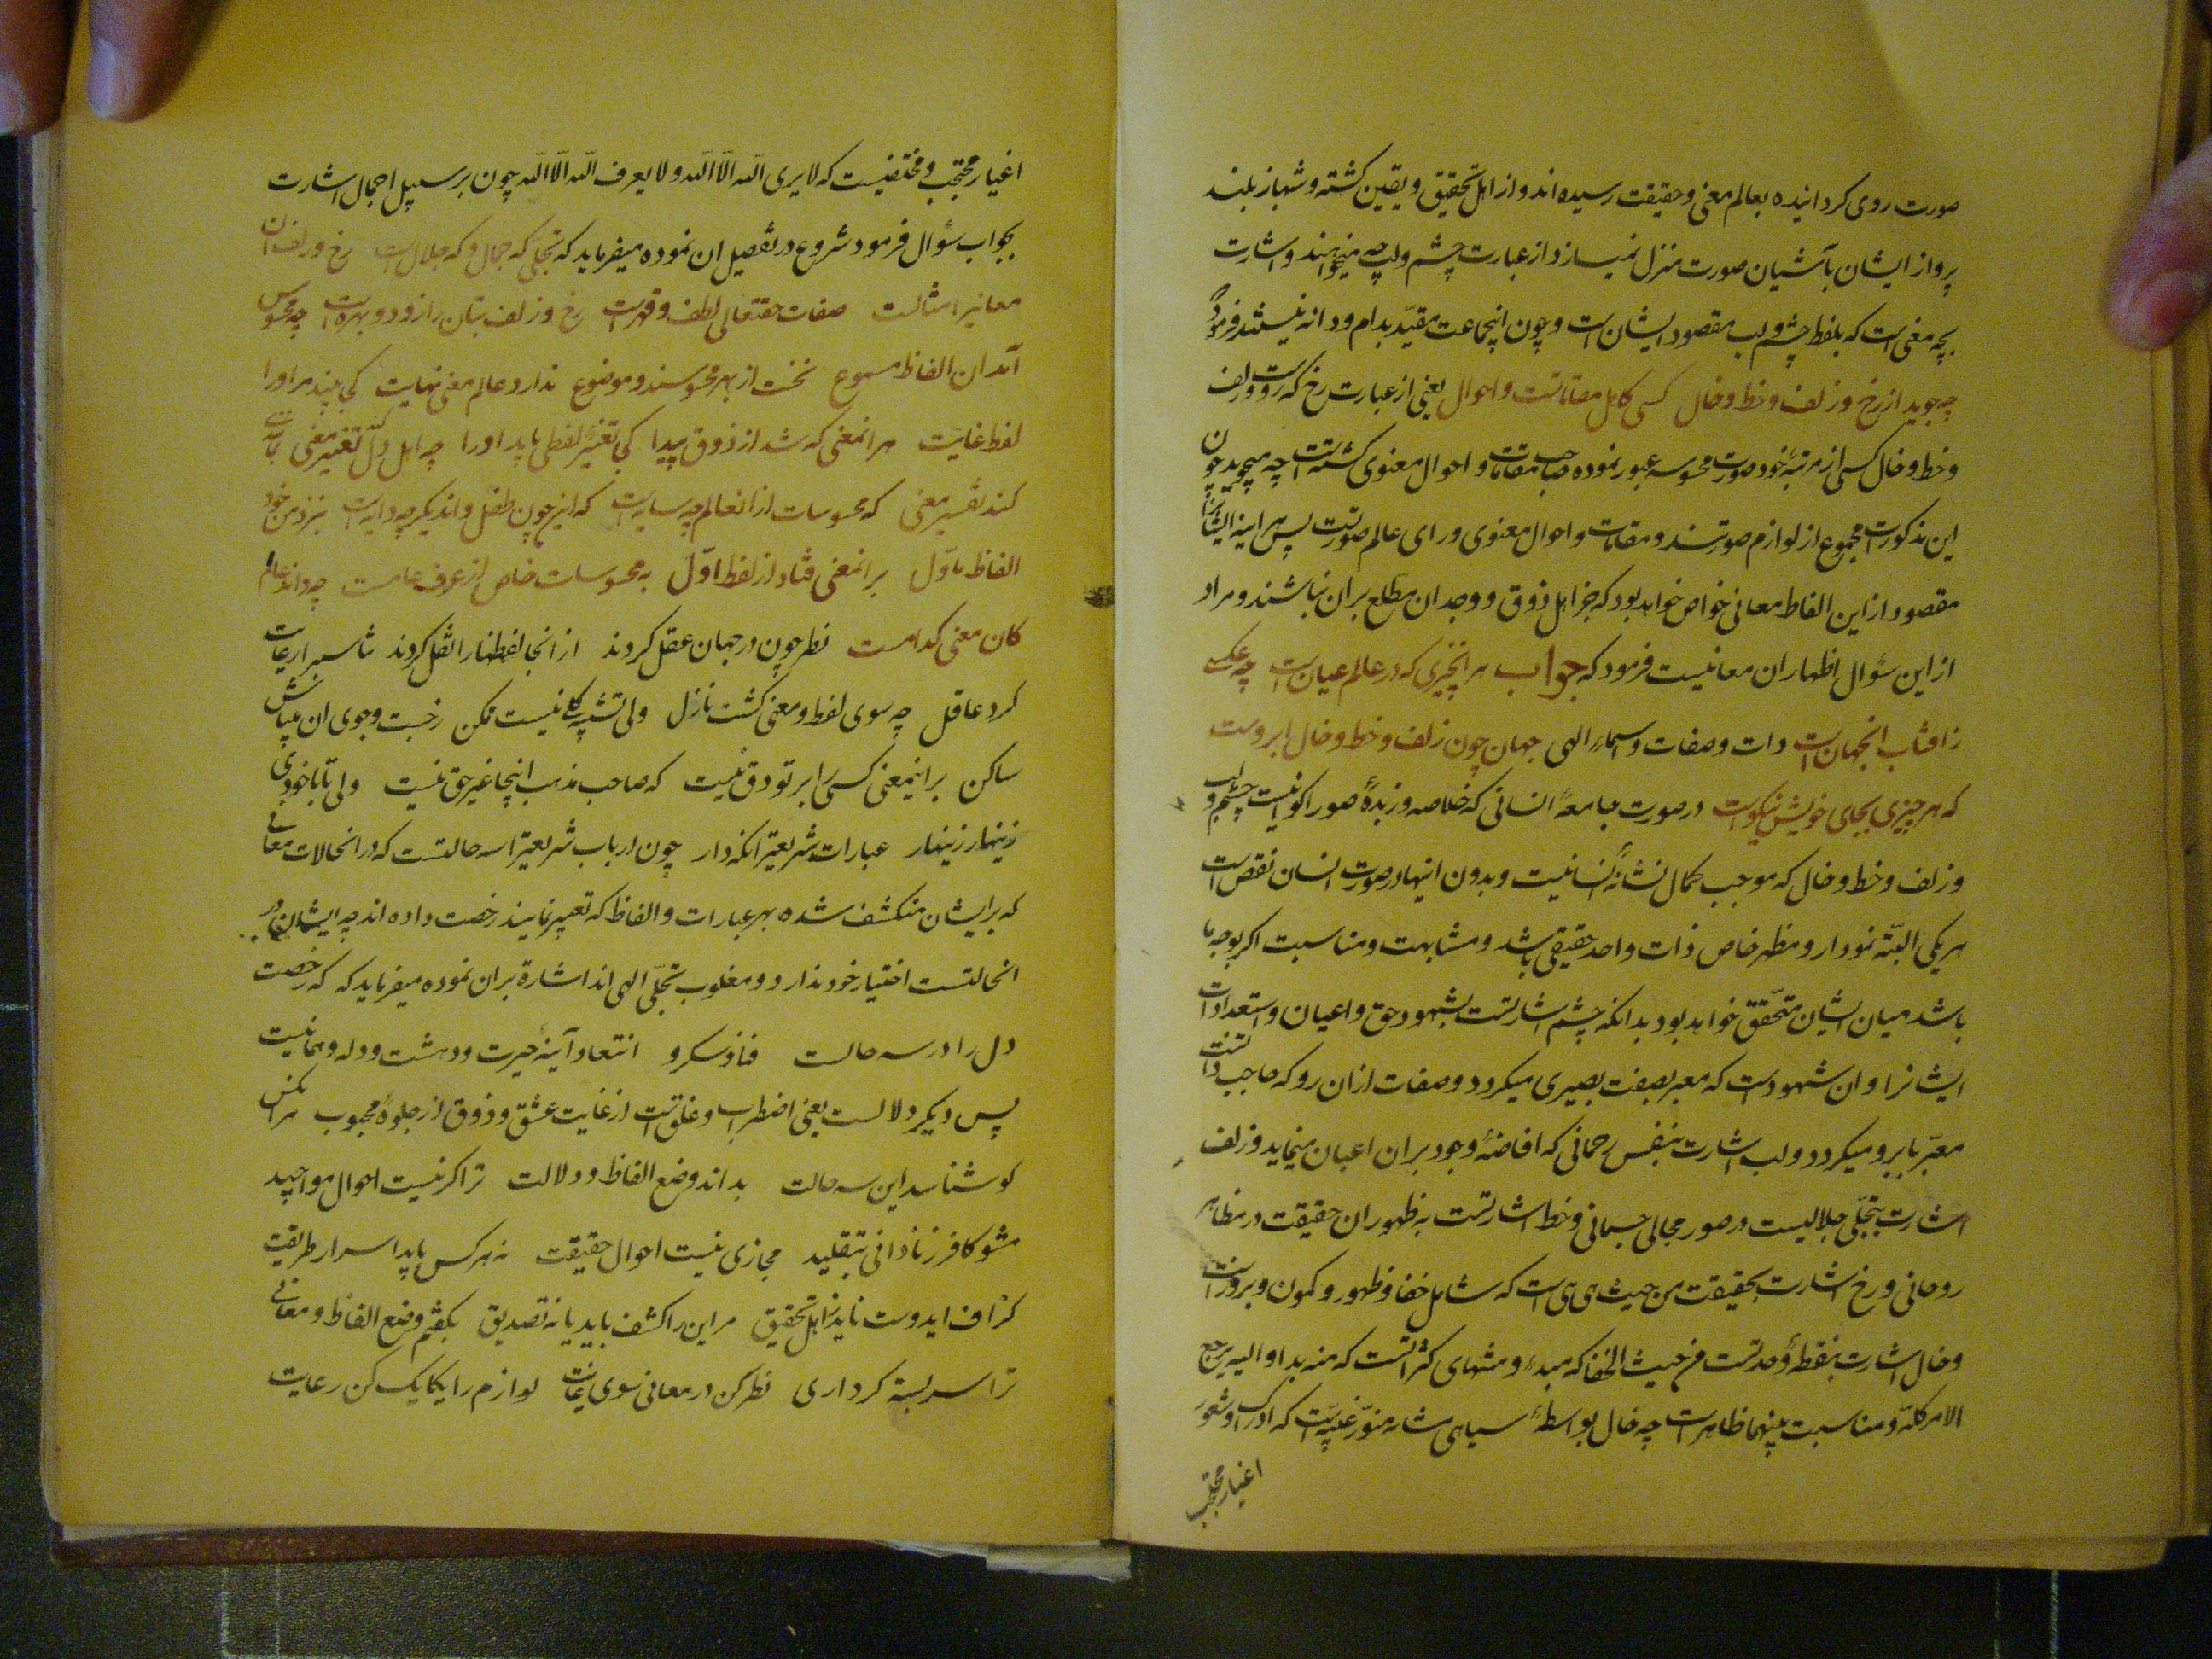 صورت روی کردانیده بعالم معنی و حقیقت رسیده اند و از اهل تحقیق و یقین کشته و شهباز بلند
پرواز ایشان بآشیان صورت منزل نمیسازد از عبارت چشم و لب چه میخواهند و اشارت
بچه معنی است که بلفظ چشم و لب مقصود ایشان است و چون اینجماعت مقید بدام و دانه نیستند فرمود
چه جوید از رخ و زلف و خط و خال کسی کابل مقاماتست و احوال یعنی از عبارت رخ که روست و زلف
و خط و خال کسی از مرتبهٔ خود صورت محسوسه عبور نموده صاحب مقامات و احوال معنوی کشته است چه میجوید چون
این مذکورات مجموع از لوازم صورتند و مقامات و احوال معنوی ورای عالم صورتست پس هر اینه ایشانرا
مقصود از این الفاظ معانی خواص خواهد بود که جز اهل ذوق و وجدان مطلع بران نباشند و مراد
از این سؤال اظهار ان معانیست فرمود که جواب هر انچیزی که در عالم عیان است چه عکسی
ز افتاب انجهان است ذات و صفات و اسماء الهی جهان چون زلف و خط و خال ابروست
که هر چیزی بجای خویش نیکوست در صورت جامعهٔ انسانی که خلاصه و زبدهٔ صور اکوانیست چشم و لب
و زلف و خط و خال که موجب کمال نشأهٔ انسانیست و بدون اینها در صورت انسان نقص است
هر یکی البته نمودار و مظهر خاص ذات واحد حقیقی باشد و مشابهت و مناسبت اکر بوجه ما
باشد میان ایشان متحقق خواهد بود بدانکه چشم اشارتست بشهود حق و اعیان و استعدادات
ایشانرا و ان شهود است که معبر بصفت بصیری میکردد و صفات از ان رو که حاجب ذاتست
معبر بابرو میکردد و لب اشارت بنفس رحمانی که افاضهٔ وجود بر ان اعیان مینماید و زلف
اشارت بتجلی جلالیست در صور مجالی جسمانی و خط اشارتست به ظهور ان حقیقت در مظاهر
روحانی و رخ اشارت بحقیقت من حیث هی هی است که شامل خفا و ظهور و کمون و بروز است
و خال اشارت بنقطهٔ وحدتست من حیث الخفا که مبدء و منتهای کثراتست که منه بدا و الیه یرجع
الامر کله و مناسبت بینهما ظاهر است چه خال بواسطهٔ سیاهی مشابه غیبیه است که ادراک و شعور
اغیار محتجب
اغیار محتجب و مختفیست که لا یری الله الا الله و لا یعرف الله الا الله چون بر سبیل اجمال اشارت
بجواب سؤال فرمود شروع در تفصیل ان نموده میفرماید که تجلی که جمال و که جلال است رخ و زلف ان
معانیرا مثالست صفات حقتعالی لطف و قهر است رخ و زلف بتان را زو دو بهر است چه محسوس
آمد ان الفاظ مسموع نخست از بهر محسوسند و موضوع ندارد عالم معنی نهایت کی بیند مر او را
لفظ غایت هر انمعنی که شد از ذوق پیدا کی تعبیر لفظی یابد او را چه اهل دل کند تفسیر معنی بمانندی
کند تفسیر معنی که محسوسات از انعالم چه سایه است که این چون طفل و اندیکر چه دایه است بنزد من خود
الفاظ مأول بر انمعنی فتاد از لفظ اول به محسوسات خاص از عرف عامست چه داند عام
کان معنی کدامست نظر چون در جهان عقل کردند از انجا لفظها را نقل کردند تناسب را رعایت
کرد عاقل چه سوی لفظ و معنی کشت نازل ولی تشبیه کلی نیست ممکن ز جست و جوی ان میباش
ساکن بر اینمعنی کسی را بر تو دق نیست که صاحب مذهب اینجا غیر حق نیست ولی تا با خودی
زینهار زینهار عبارات شریعترا نکه دار چون ارباب شریعترا سه حالتست که در انحالات معانی
که بر ایشان منکشف شده بهر عبارات و الفاظ که تعبیر نمایند رخصت داده اند چه ایشان در
انحالتست اختیار خود ندارد و مغلوب تجلی الهی اند اشارة بران نموده میفرماید که که رخصت
دل را در سه حالست فنا و سکر و انتعاد آینهٔ حیرت و دهشت و وله و همانیست
پس دیکر دلالست یعنی اضطراب و غلق است از غایت عشق و ذوق از جلوهٔ محبوب هر انکس
کو شناسد این سه حالت بداند وضع الفاظ و دلالت ترا کر نیست احوال مواجید
مشو کافر ز نادانی بتقلید مجازی نیست احوال حقیقت نه هر کس یابد اسرار طریقت
کزاف ای دوست ناید ز اهل تحقیق مر این را کشف باید یا نه تصدیق بکفتم وضع الفاظ و معانی
ترا سر بسته کر داری نظر کن در معانی سوی غایات لوازم را یکایک کن رعایت